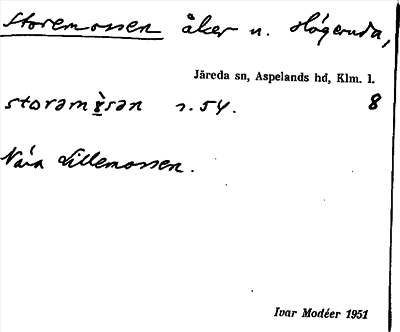 Storemossen åker n. Högeruda,
Järeda sn, Aspelands hd, Klm. l.
8
storam s. 54.
Nära Lillemossen.
Ivar Modéer 1951